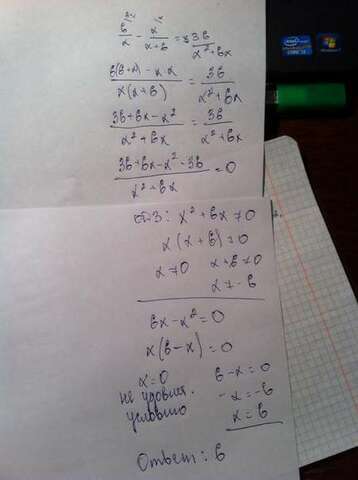 6/x - x/(x+6) = 36/(x²+6x)
(6(6+x) - x·x)/(x(x+6)) = 36/(x²+6x)
(36+6x-x²)/(x²+6x) = 36/(x²+6x)
(36+6x-x²-36)/(x²+6x) = 0
ОДЗ: x²+6x≠0
x(x+6)≠0
x≠0 x+6≠0
x≠-6
6x-x²=0
x(6-x)=0
x=0 6-x=0
не удовлет. -x=-6
условию x=6
Ответ: 6
intel